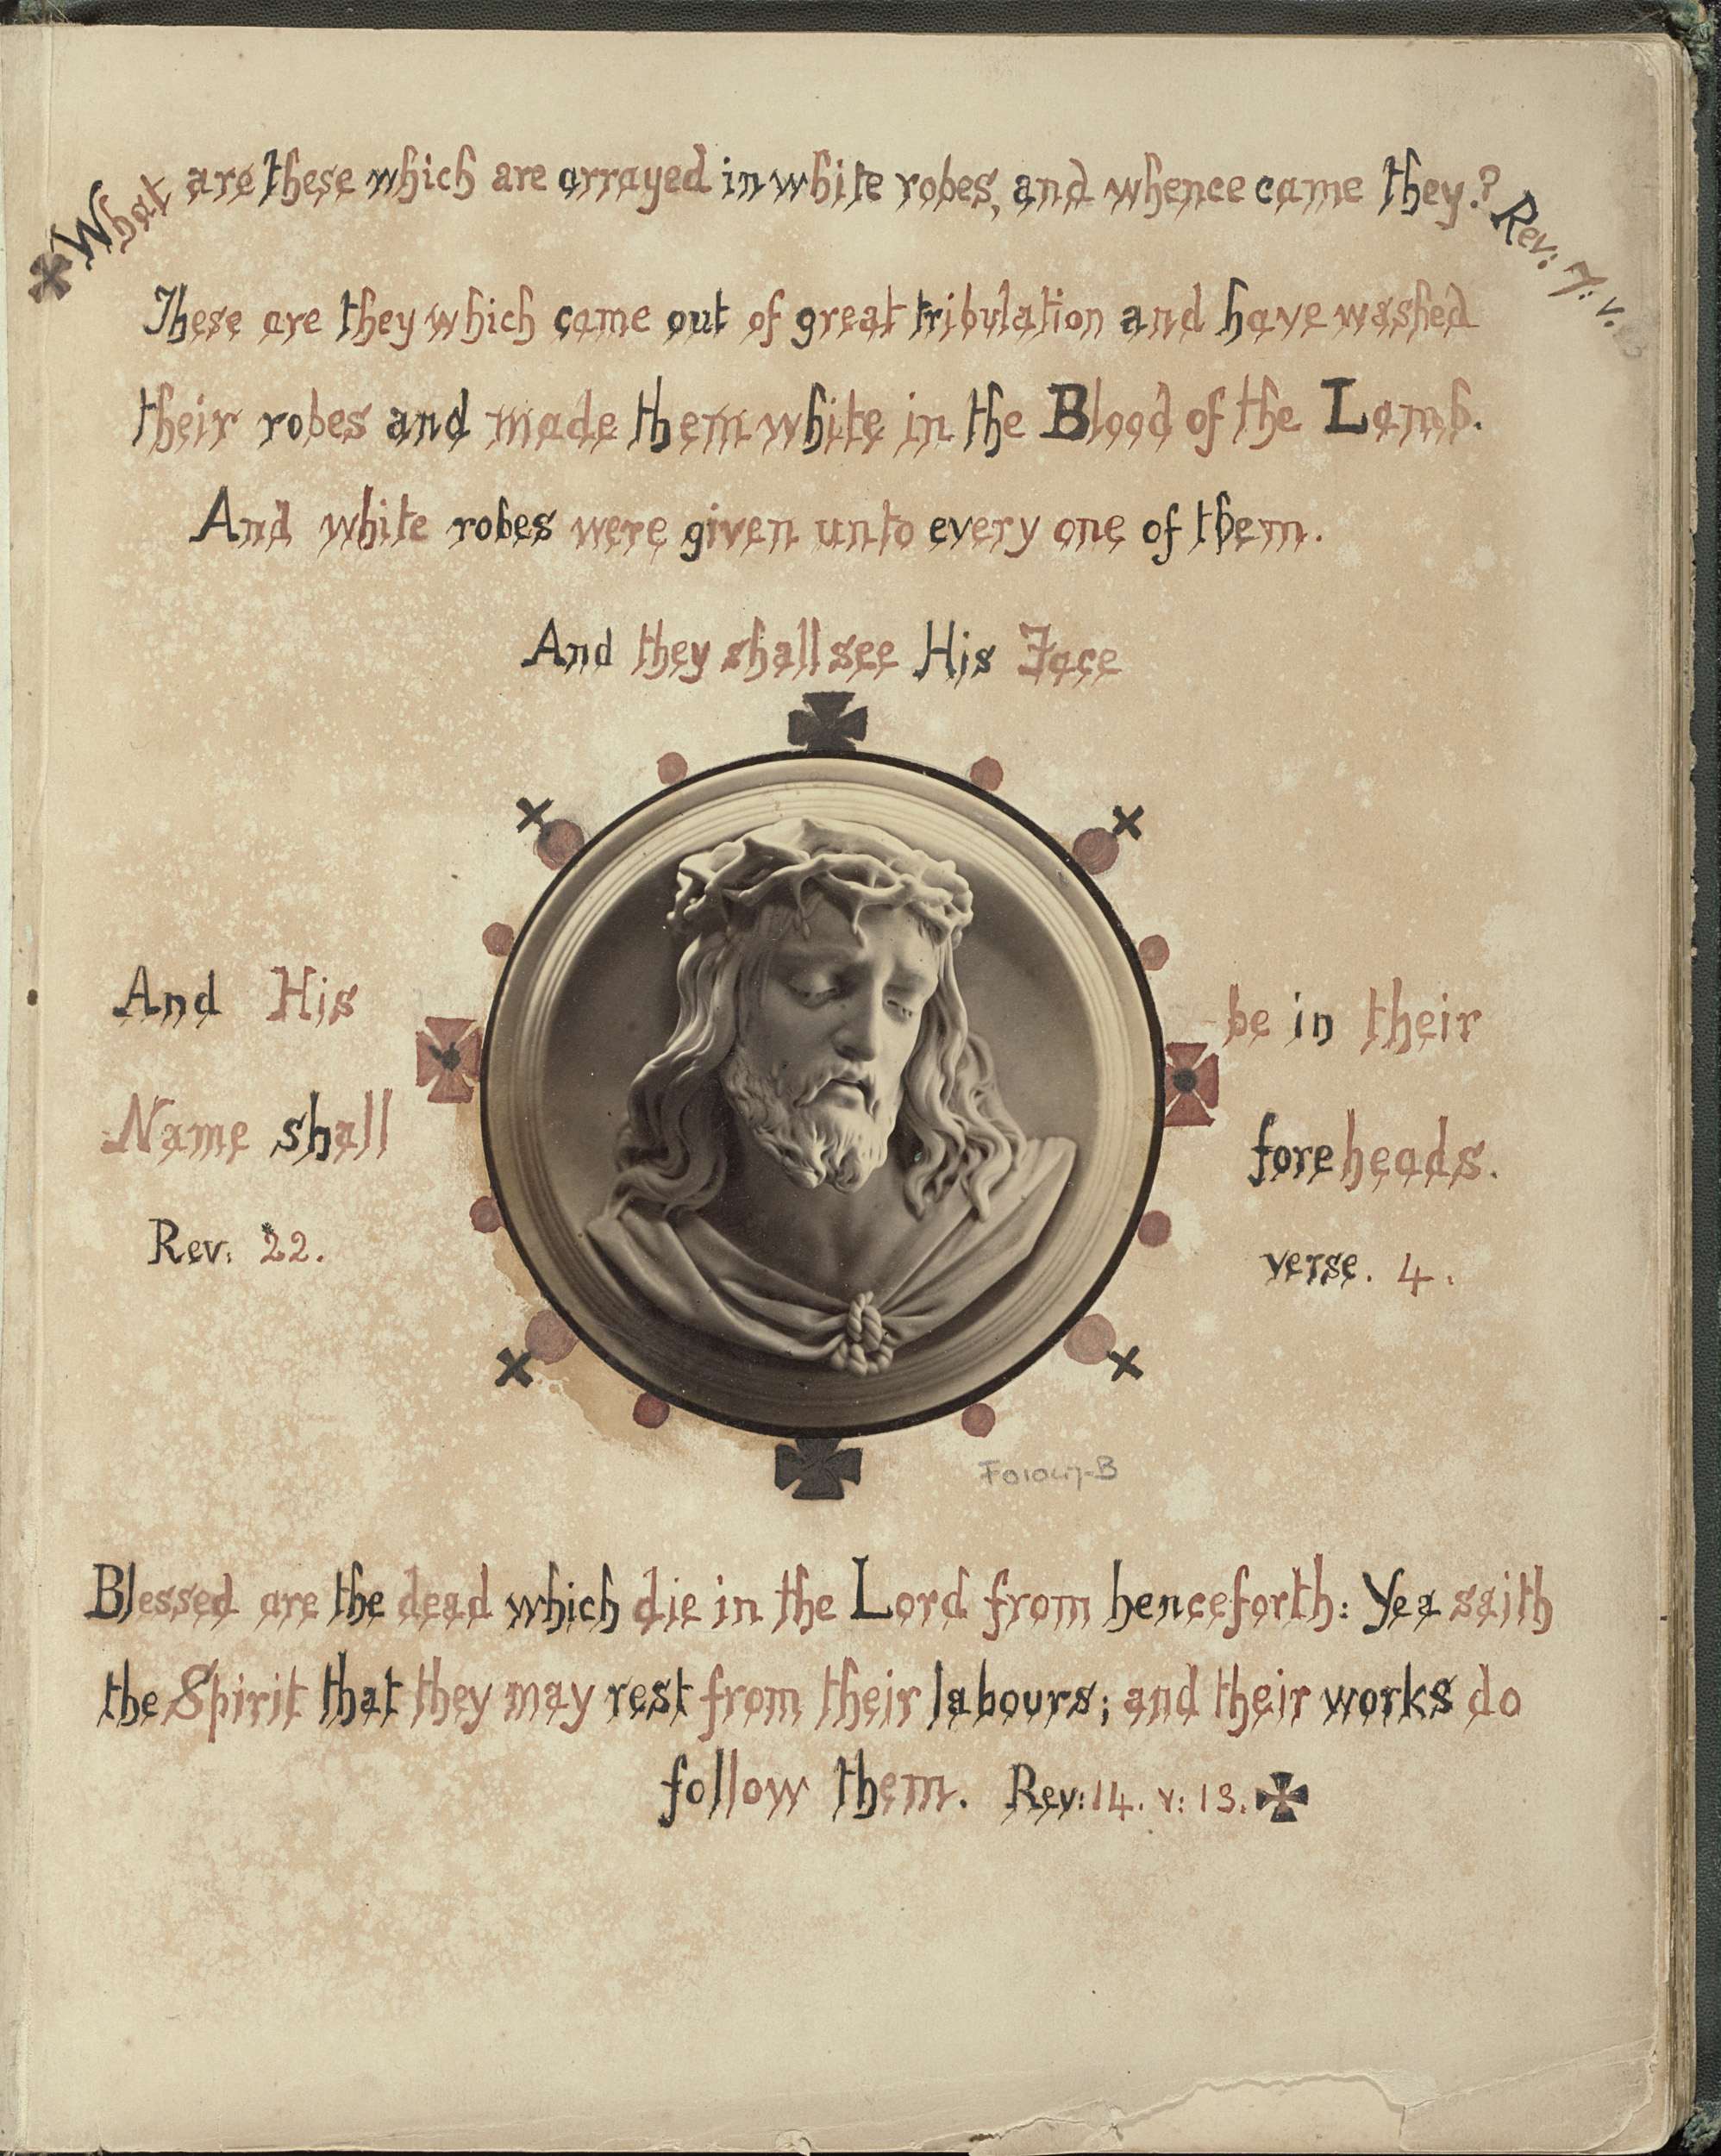 What are these which are arrayed in white robes, and whence came they? Rev: 7: v.
These are they which came out of great tribulation and have washed
their robes and made them white in the Blood of the Lamb.
And white robes were given unto every one of them.
And they shall see His Face
And His
Name shall
Rev: 22.
be in their
foreheads.
verse. 4.
Blessed are the dead which die in the Lord from henceforth: Yea saith
the Spirit that they may rest from their labours; and their works do
follow them. Rev: 14. v: 13.